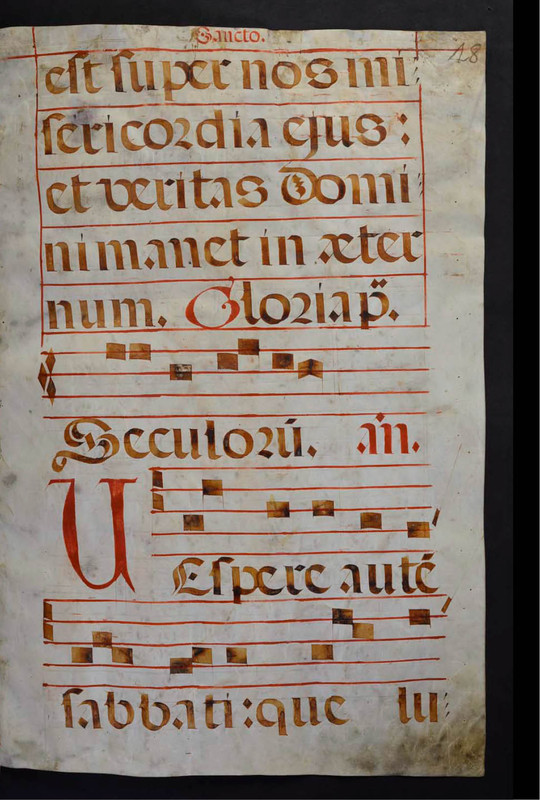 Sancto.
18
est super nos mi
sericordia ejus:
et veritas Domi
ni manet in æter
num. Gloria p̃.
Seculorũ. añ.
VEspere autẽ
sabbati: que lu